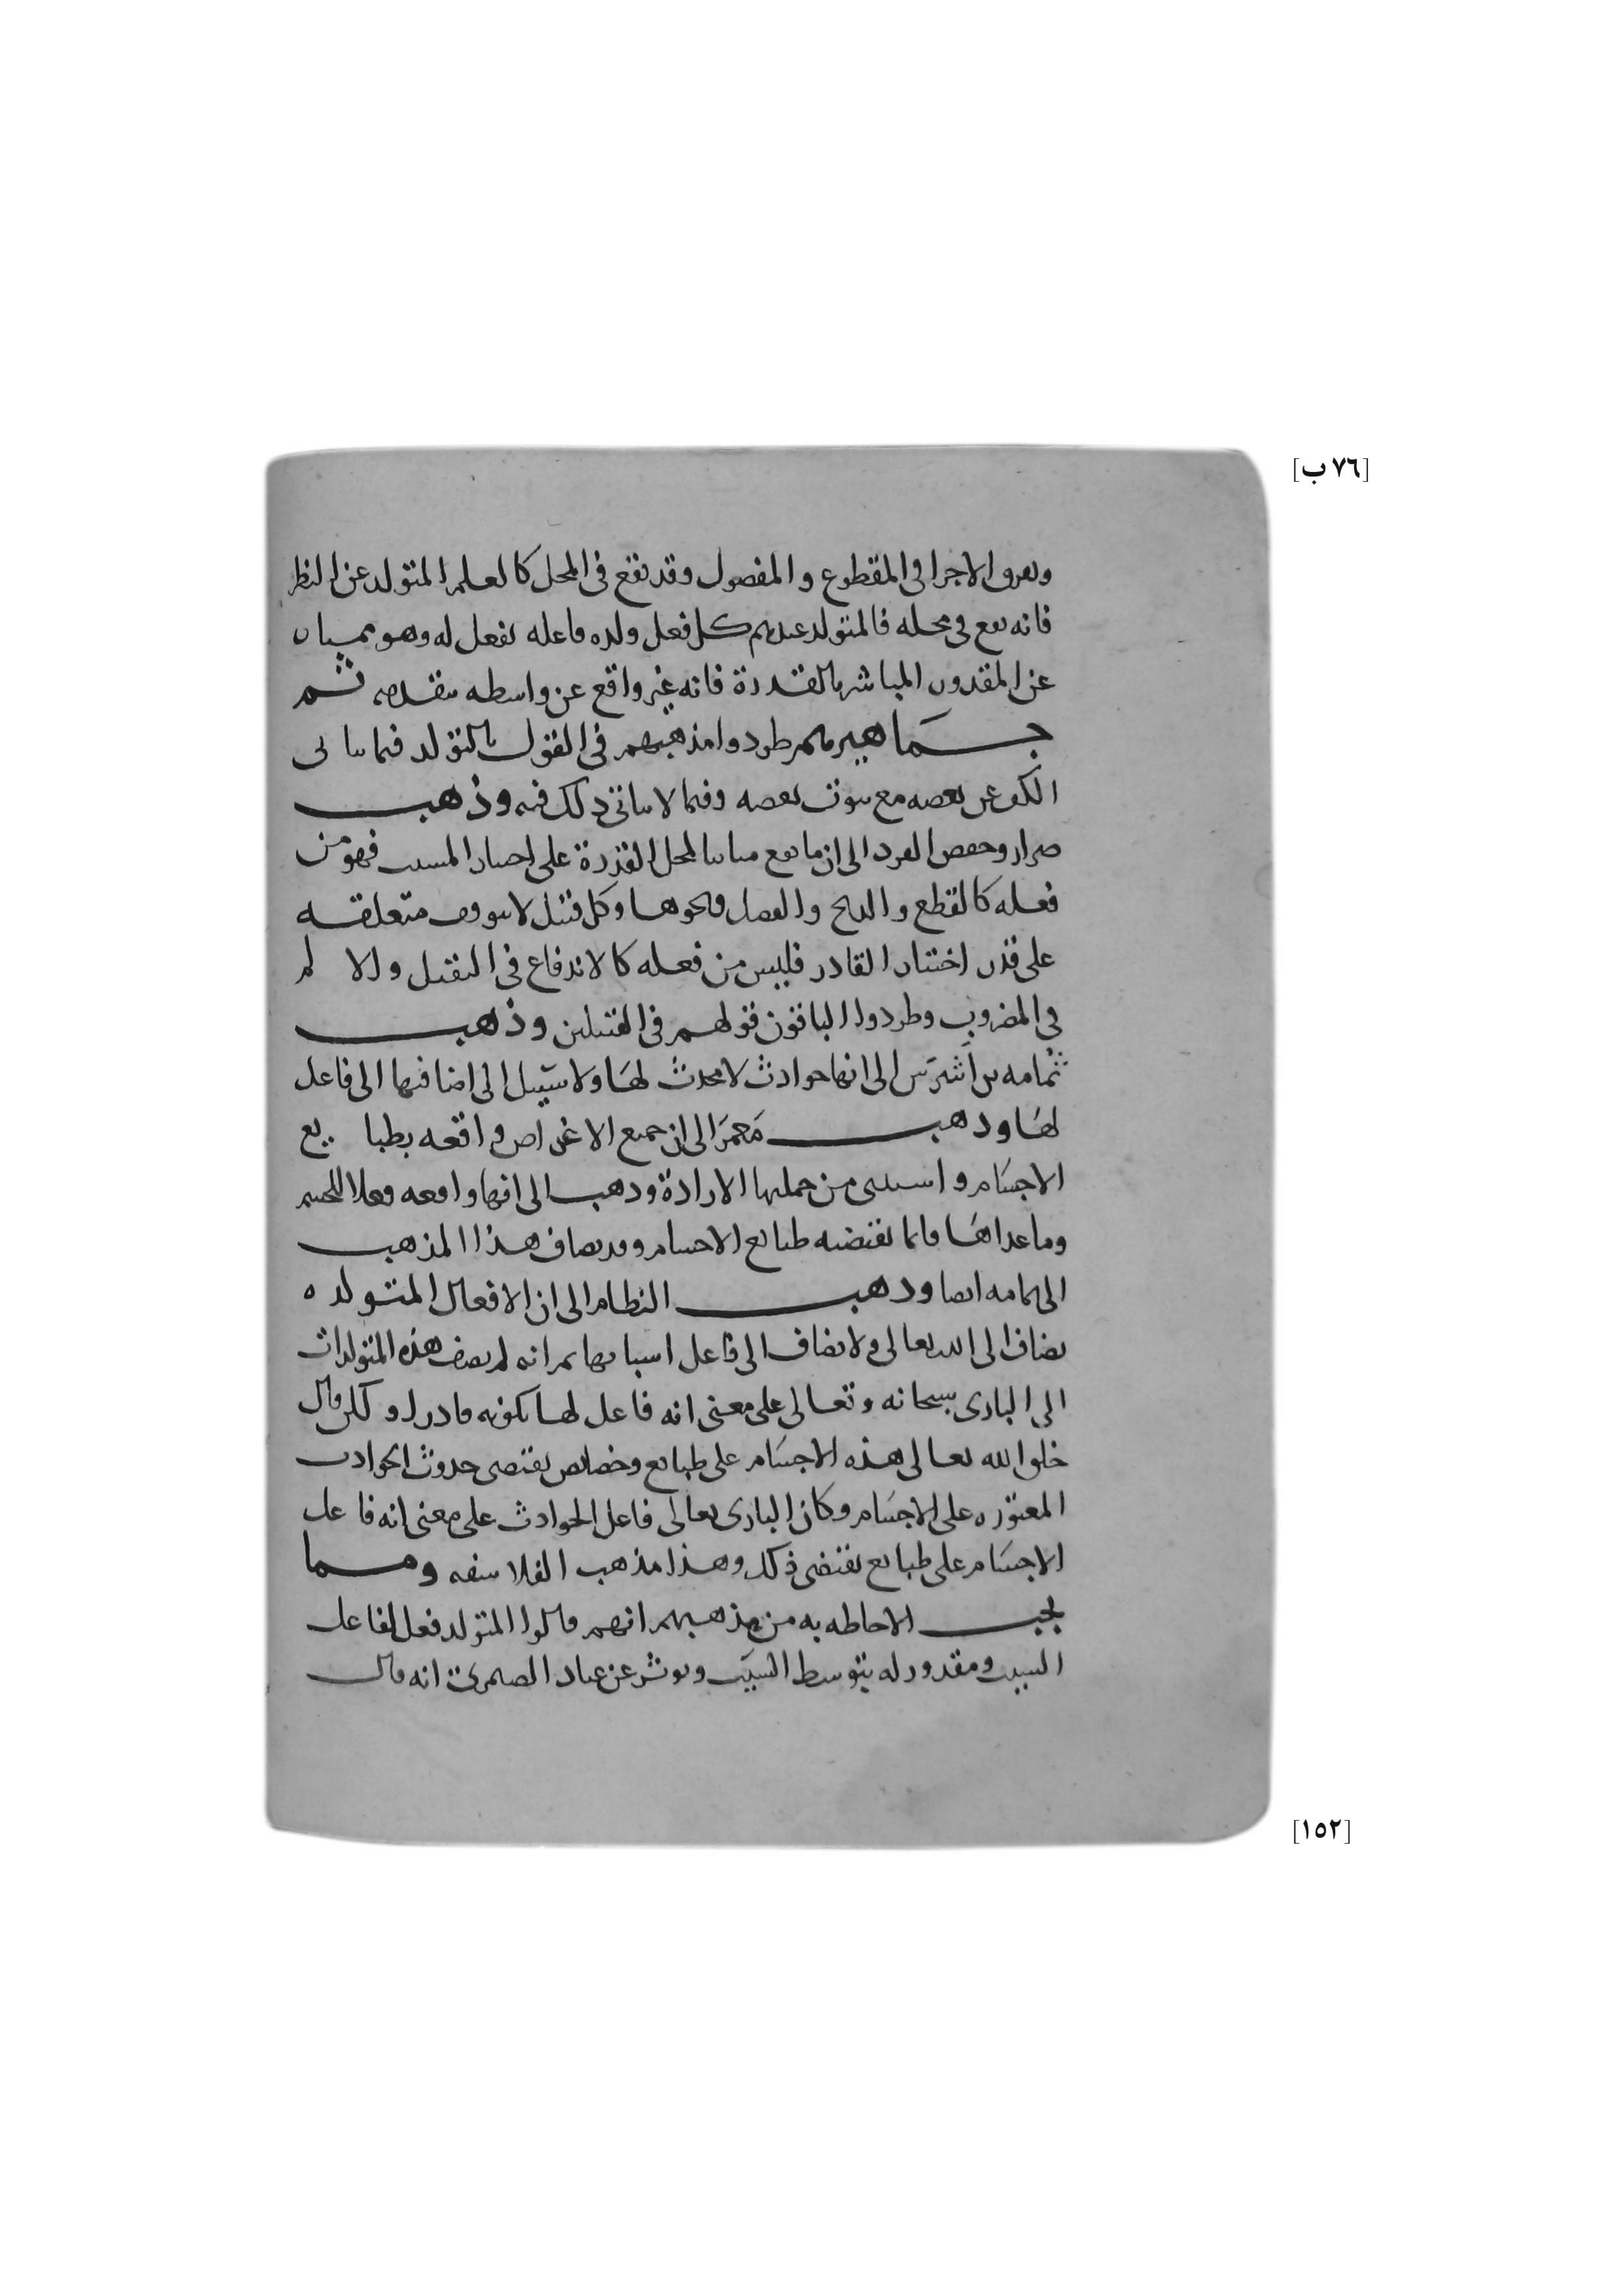 [٧٦ ب]
وتفرق الاجزا في المقطوع والمفصول وقد تقع في المحل كالعلم المتولد عن النظر
فانه يقع في محله فالمتولد عندهم كل فعل ولده فاعله بفعل له وهو مميار
عن المقدور المباشر بالقدرة فانه غير واقع عن واسطه متقدمه ثم
جماهيرهم طردوا مذهبهم في القول بالتولد فيما يتاتى
الكف عن بعضه مع ثبوت بعضه وفيما لا يتاتى ذلك فيه وذهب
ضرار وحفص الفرد الى ان ما يقع مباينا لمحل القدرة على اختيار المسبب فهو من
فعله كالقطع والذبح والفصل ونحوها وكل قبيل لا يتوقف متعلقه
على قدر اختيار القادر فليس من فعله كالاندفاع في الثقيل والالم
في المضروب وطردوا الباقون قولهم في القبيلين وذهب
ثمامه بن أشرَس الى انها حوادث لا محدث لها ولا سبيل الى اضافتها الى فاعل
لها وذهب مَعمَر الى ان جميع الاعراض واقعه بطبايع
الاجسام واستثنى من جملتها الارادة وذهب الى انها واقعه فعلا للجسم
وما عداها فانما تقتضيه طبايع الاجسام وقد يضاف هذا المذهب
الى ثمامه ايضا وذهب النظام الى ان الافعال المتولده
تضاف الى الله تعالى ولا تضاف الى فاعل اسبابها ثم انه لم يضف هذه المتولدات
الى البارى سبحانه وتعالى على معنى انه فاعل لها بكونه قادرا ولكن قال
خلق الله تعالى هذه الاجسام على طبايع وخصايص تقتضى حدوث الحوادث
المعتوره على الاجسام وكان البارى تعالى فاعل الحوادث على معنى انه فاعل
الاجسام على طبايع تقتضى ذلك وهذا مذهب الفلاسفه ومما
يجب الاحاطه به من مذهبهم انهم قالوا المتولد فعل لفاعل
السبب ومقدور له بتوسط السبب ويوثر عن عباد الصيمرى انه قال
[١٥٢]